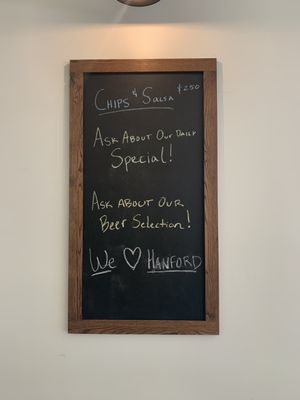 Chips & Salsa $2.50
Ask About Our Daily
Special!
Ask About Our
Beer Selection!
We ♡ Hanford